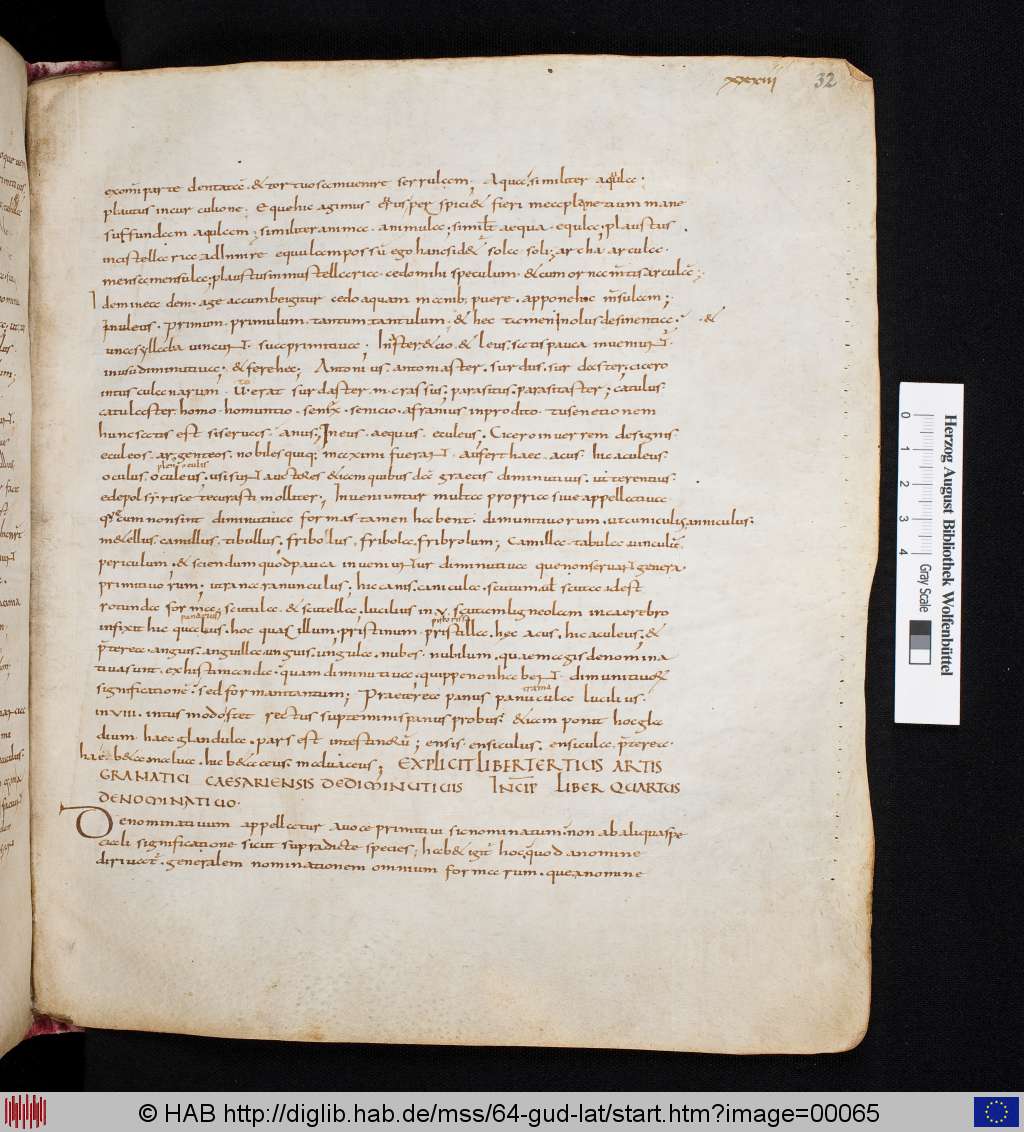 xxxiii 32
ex omni parte dentata & tortuosa invenire serrulam; Aqua similiter aqula;
plautus in curculione. Equehic agimus
suffundam aqulam; similiter anima. animula; aequa. equla; plautus
in cistellaria adlinire equulam possum ego hanc sola soli; archa. arcula.
mensa mensula; plautus in mustellaria. cedo mihi speculum. & cum ornamentis arcula;
Idem in eadem. age accumbe igitur cedo aquam manib; puere. appone hic mensulam;
Inuleus. primum. primulum. tantum. tantulum. & hec tamen in olus desinentia. &
una syllaba vincunt sua primitiva; In ster & cio. & leus. satis pauca inveniunt
diminutiva; & fere hec; Antonius. antoniaster. surdus. surdaster; cicero
in tusculanarum. Verat surdaster m. crassus; parasitus. parasitaster; catulus.
catulaster. homo. homuntio. senex. senicio. afranius in prodito. tu senecionem
hunc satis est si servas. anus; Ineus. aequus. eculeus. Cicero in verrem de signis.
eculeos. argenteos. nobiles quiq; maximi fuerant. aufert haec. acus. hic aculeus.
oculus. oculeus. usi sunt auctores etiam quibusdam graecis diminutivis. ut terentius
edepol syrisce te curasti molliter; Inveniuntur multa propria sive appellativa
cum non sint diminutiva formas tamen habent. diminutivorum. ut cuniculus. anniculus;
metellus. camillus. tibullus. fribolus. fribola. fribolum; Camilla. tabula. vinculum.
periculum. & sciendum quod pauca inveniuntur diminutiva que non servant genera.
primitivorum; ut rana ranunculus; hic canis. canicula. scutum scuta id est
rotunda forma. scutula. & scutella. lucilius in v. scutam ligneolam in cerebro
infixit hic qualus. hoc quasillum; pristinum. pristilla. hec acus. hic aculeus. &
preterea. anguis. anguilla. unguis. ungula. nubes. nubilum. quae magis denomina
tiva sunt. existimanda. quam diminutiva. quippe non habent diminutivorum
significationem. sed formam tantum; Praeterea panus panucula lucilius.
in viiii. intus modo stet rectus subteminis panus probus. etiam ponit hoc gla
dium. haec glandula. pars est intestinorum; ensis. ensiculus. ensicula. preterea.
haec beta maluca. hic betaceus. malvaceus; EXPLICIT LIBER TERTICIS ARTIS
GRAMATICI CAESARIENSIS DE DIMINUTIVIS INCIP LIBER QUARTUS
DENOMINATIVO.
Denominativum appellatur a voce primitivi sic nominatum. non ab aliqua spe
ciali significatione sicut supradicte species; hab& igitur hoc quod a nomine
dirivatur. generalem nominationem omnium formarum. que a nomine
Herzog August Bibliothek Wolfenbüttel
Gray Scale
0 1 2 3 4
© HAB http://diglib.hab.de/mss/64-gud-lat/start.htm?image=00065